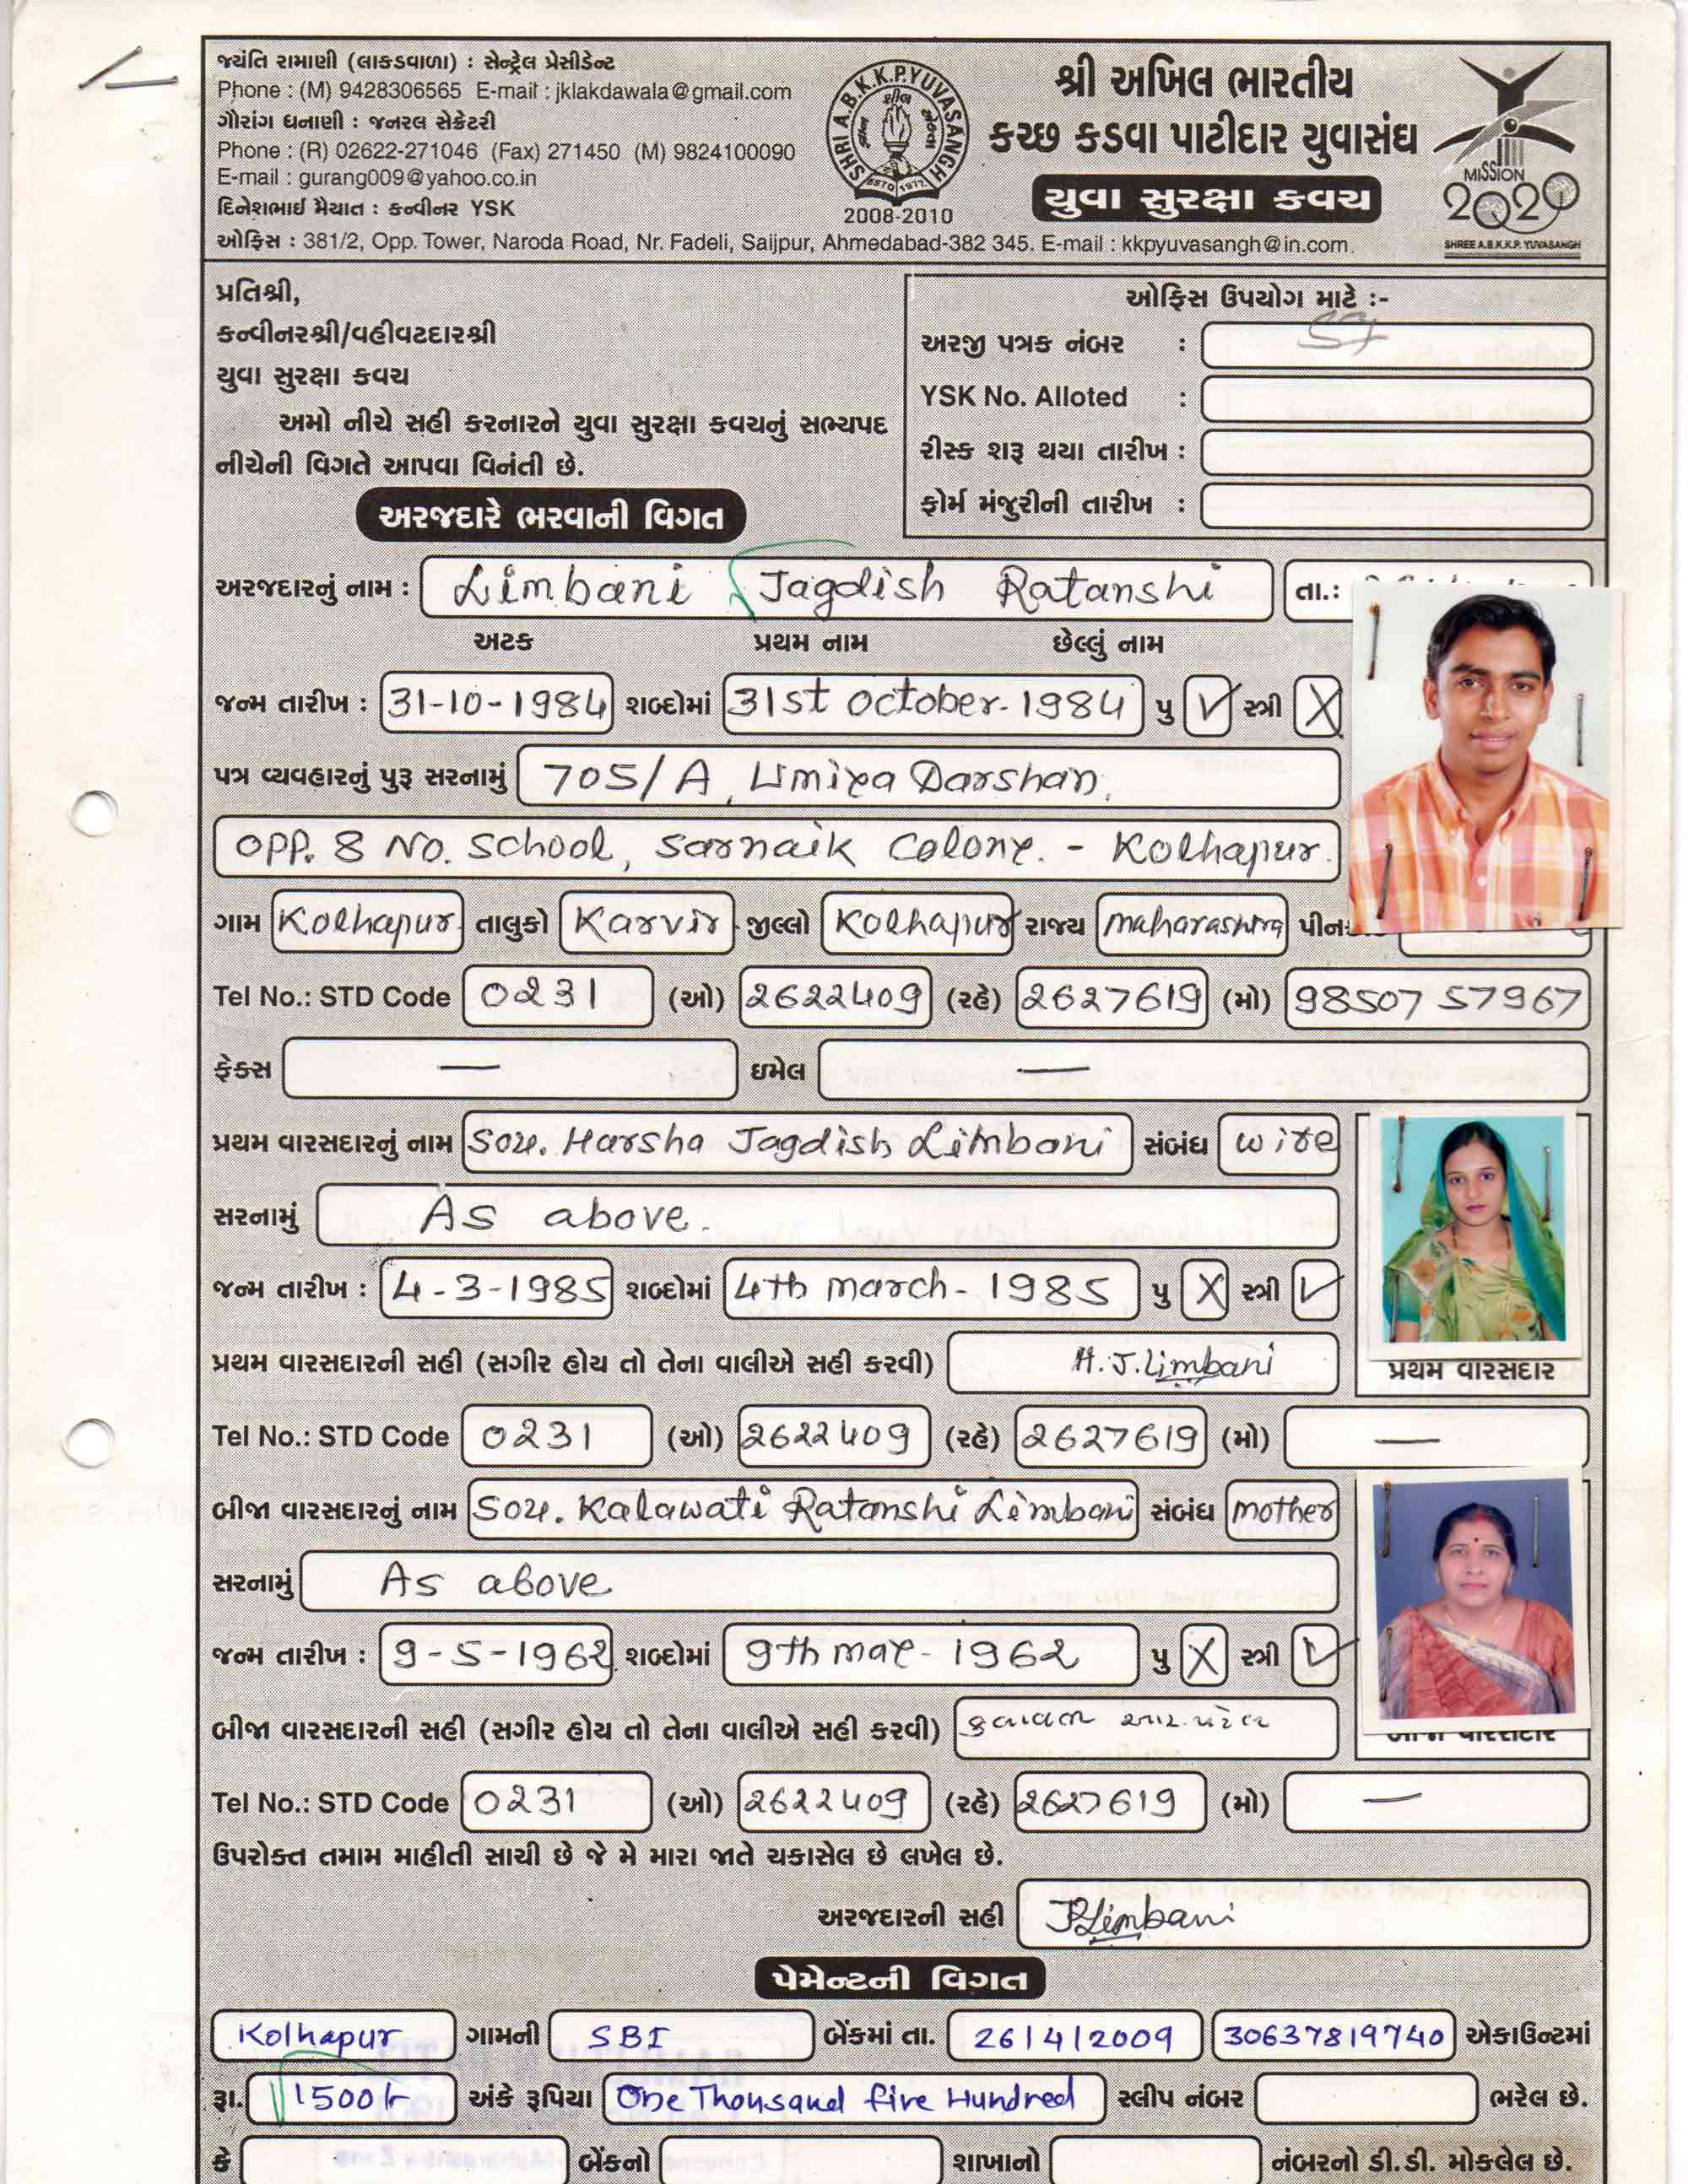 જયંતિ રામાણી (લાકડાવાળા) : સેન્ટ્રેલ પ્રેસીડેન્ટ
Phone : (M) 9428306565 E-mail : jklakdawala@gmail.com
ગૌરાંગ ધનાણી : જનરલ સેક્રેટરી
Phone : (R) 02622-271046 (Fax) 271450 (M) 9824100090
E-mail : gurang009@yahoo.co.in
દિનેશભાઈ મૈયાત : કન્વીનર YSK
SHRI A.B.K.K.P.YUVASANGH
ESTD 1977
2008-2010
શ્રી અખિલ ભારતીય
કચ્છ કડવા પાટીદાર યુવાસંઘ
યુવા સુરક્ષા કવચ
MISSION
2020
SHREE A.B.K.K.P. YUVASANGH
ઓફિસ : 381/2, Opp. Tower, Naroda Road, Nr. Fadeli, Saijpur, Ahmedabad-382 345. E-mail : kkpyuvasangh@in.com.
પ્રતિશ્રી,
કન્વીનરશ્રી/વહીવટદારશ્રી
યુવા સુરક્ષા કવચ
અમો નીચે સહી કરનારને યુવા સુરક્ષા કવચનું સભ્યપદ
નીચેની વિગતે આપવા વિનંતી છે.
ઓફિસ ઉપયોગ માટે :-
અરજી પત્રક નંબર :
YSK No. Alloted :
રીસ્ક શરૂ થયા તારીખ :
ફોર્મ મંજુરીની તારીખ :
અરજદારે ભરવાની વિગત
અરજદારનું નામ : Limbani Jagdish Ratanshi તા.:
અટક પ્રથમ નામ છેલ્લું નામ
જન્મ તારીખ : 31-10-1984 શબ્દોમાં 31st october-1984 પુ ✓ સ્ત્રી X
પત્ર વ્યવહારનું પુરૂ સરનામું 705/A, Umiya Darshan,
OPP. 8 No. School, Sarnaik Colony. - Kolhapur.
ગામ Kolhapur તાલુકો Karvir જીલ્લો Kolhapur રાજ્ય maharashtra પીન
Tel No.: STD Code 0231 (ઓ) 2622409 (રહે) 2627619 (મો) 98507 57967
ફેક્સ — ઇમેલ —
પ્રથમ વારસદારનું નામ Sou. Harsha Jagdish Limbani સંબંધ wife
સરનામું As above.
જન્મ તારીખ : 4-3-1985 શબ્દોમાં 4th march-1985 પુ X સ્ત્રી ✓
પ્રથમ વારસદારની સહી (સગીર હોય તો તેના વાલીએ સહી કરવી) H.J.Limbani
પ્રથમ વારસદાર
Tel No.: STD Code 0231 (ઓ) 2622409 (રહે) 2627619 (મો) —
બીજા વારસદારનું નામ Sou. Kalawati Ratanshi Limbani સંબંધ mother
સરનામું As above
જન્મ તારીખ : 9-5-1962 શબ્દોમાં 9th may-1962 પુ X સ્ત્રી ✓
બીજા વારસદારની સહી (સગીર હોય તો તેના વાલીએ સહી કરવી)
Tel No.: STD Code 0231 (ઓ) 2622409 (રહે) 2627619 (મો) —
ઉપરોક્ત તમામ માહીતી સાચી છે જે મે મારા જાતે ચકાસેલ છે લખેલ છે.
અરજદારની સહી JRLimbani
પેમેન્ટની વિગત
Kolhapur ગામની SBI બેંકમાં તા. 26/4/2009 30637819740 એકાઉન્ટમાં
રૂા. 1500/- અંકે રૂપિયા One Thousand five Hundred સ્લીપ નંબર ભરેલ છે.
કે બેંકનો શાખાનો નંબરનો ડી.ડી. મોકલેલ છે.